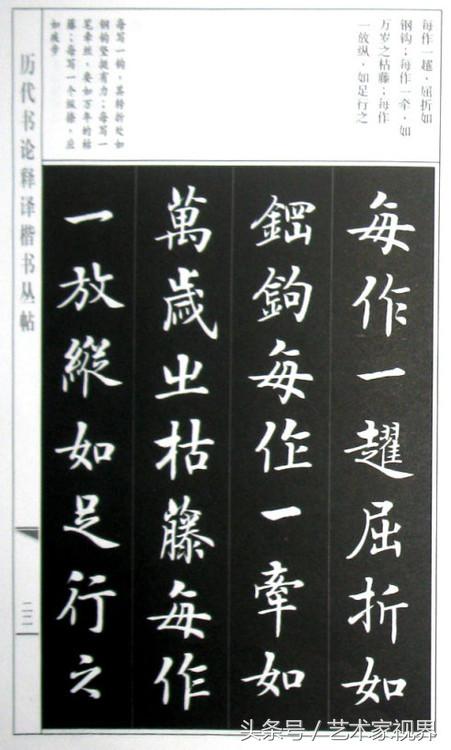 每作一趯，屈折如
钢钩；每作一牵，如
万岁之枯藤；每作
一放纵，如足行之
每写一钩，其转折处如
钢钩坚挺有力；每写一
笔牵丝，要如万年的枯
藤；每写一个纵捺，应
如疾步
每作一趯屈折如
鋼鉤每作一牽如
萬歲㞢枯藤每作
一放縱如足行之
历代书论释译楷书丛帖
二二
头条号/艺术家视界